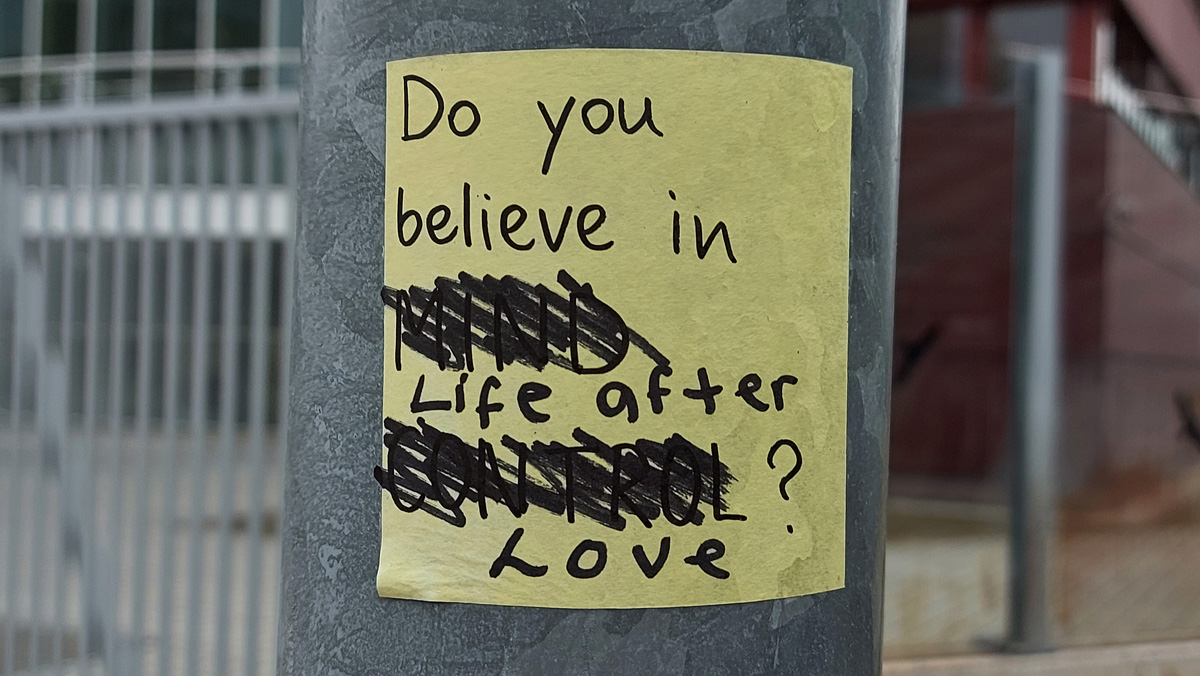 Do you
believe in
MIND
Life after
CONTROL ?
Love